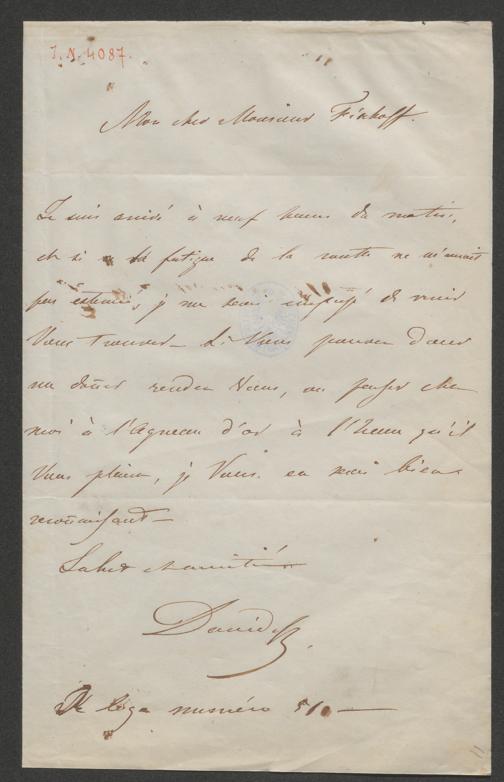 I. N. 4087.
Mon cher Monsieur Fischoff.
Je suis arivé à neuf heures du matin,
et si la fatigue de la routte ne m'aurait
pas extenué, je me serai empressé de venir
Vous trouver – Si Vous pouvez donc
me doñer rendez Vous, ou passer chez
moi à l'agneau d'or à l'heure qu'il
Vous plaira, je Vous en serai bien
reconaissant –
Salut et amitié
David
Je loge numéro 510 –